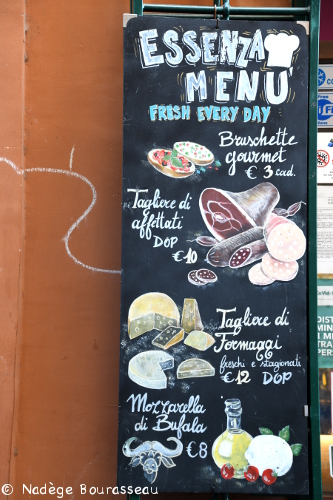 ESSENZA
MENÙ
FRESH EVERY DAY
Bruschette
gourmet
€ 3 cad.
Tagliere di
affettati
DOP
€ 10
Tagliere di
Formaggi
freschi e stagionati
€ 12 DOP
Mozzarella
di Bufala
€ 8
© Nadège Bourasseau